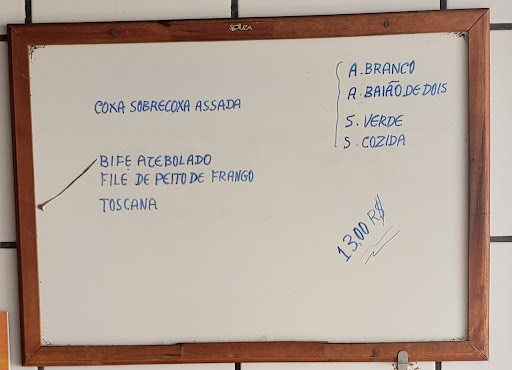 COXA SOBRECOXA ASSADA
BIFE ACEBOLADO
FILE DE PEITO DE FRANGO
TOSCANA
A. BRANCO
A. BAIÃO DE DOIS
S. VERDE
S. COZIDA
13,00 R$